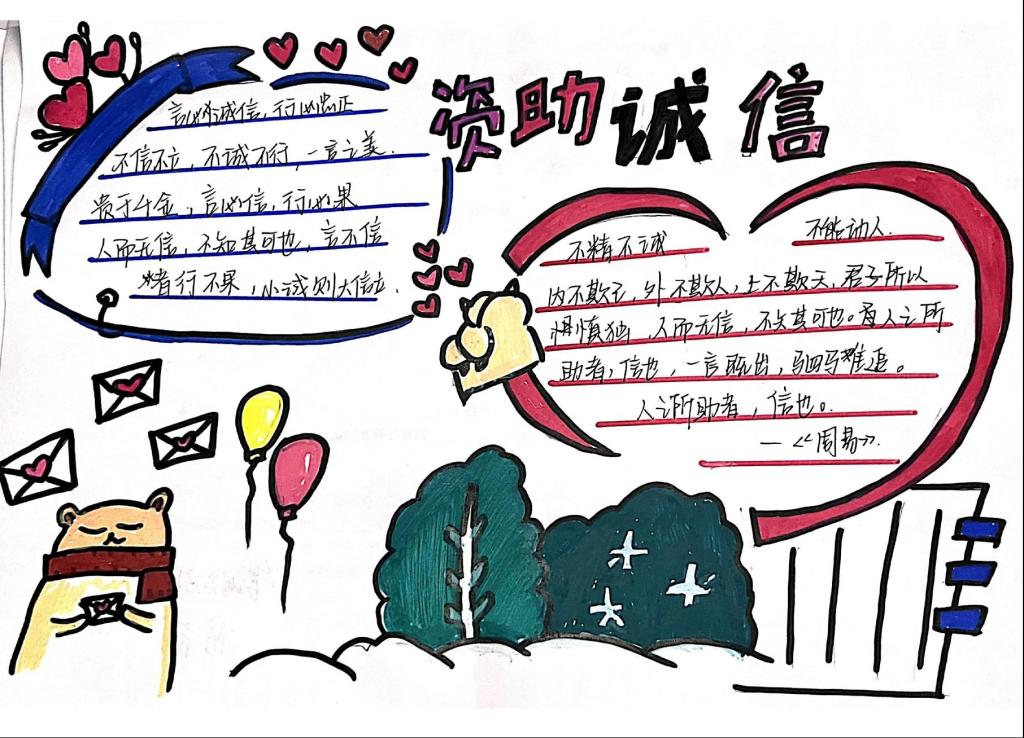 资助诚信
言必诚信，行必忠正
不信不立，不诚不行，一言之美，
贵于千金，言必信，行必果
人而无信，不知其可也，言不信
者行不果，小诚则大信立，
不精不诚 不能动人.
内不欺己，外不欺人，上不欺天，君子所以
慎独，人而无信，不知其可也。人之所
助者，信也，一言既出，驷马难追。
人之所助者，信也。
—《周易》.